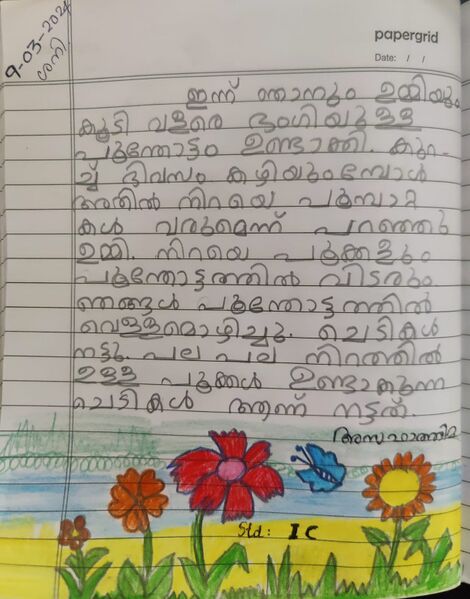 9-03-2024
ശനി
papergrid
Date: / /
ഇന്ന് ഞാനും ഉമ്മിയും
കൂടി വളരെ ഭംഗിയുള്ള
പൂന്തോട്ടം ഉണ്ടാക്കി. കുറ-
ച്ച് ദിവസം കഴിയുംമ്പോൾ
അതിൽ നിറയെ പൂമ്പാറ്റ
കൾ വരുമെന്ന് പറഞ്ഞു
ഉമ്മി. നിറയെ പൂക്കളും
പൂന്തോട്ടത്തിൽ വിടരും.
ഞങ്ങൾ പൂന്തോട്ടത്തിൽ
വെള്ളമൊഴിച്ചു. ചെടികൾ
നട്ടു. പല പല നിറത്തിൽ
ഉള്ള പൂക്കൾ ഉണ്ടാകുന്ന
ചെടികൾ ആണ് നട്ടത്.
Std: I C